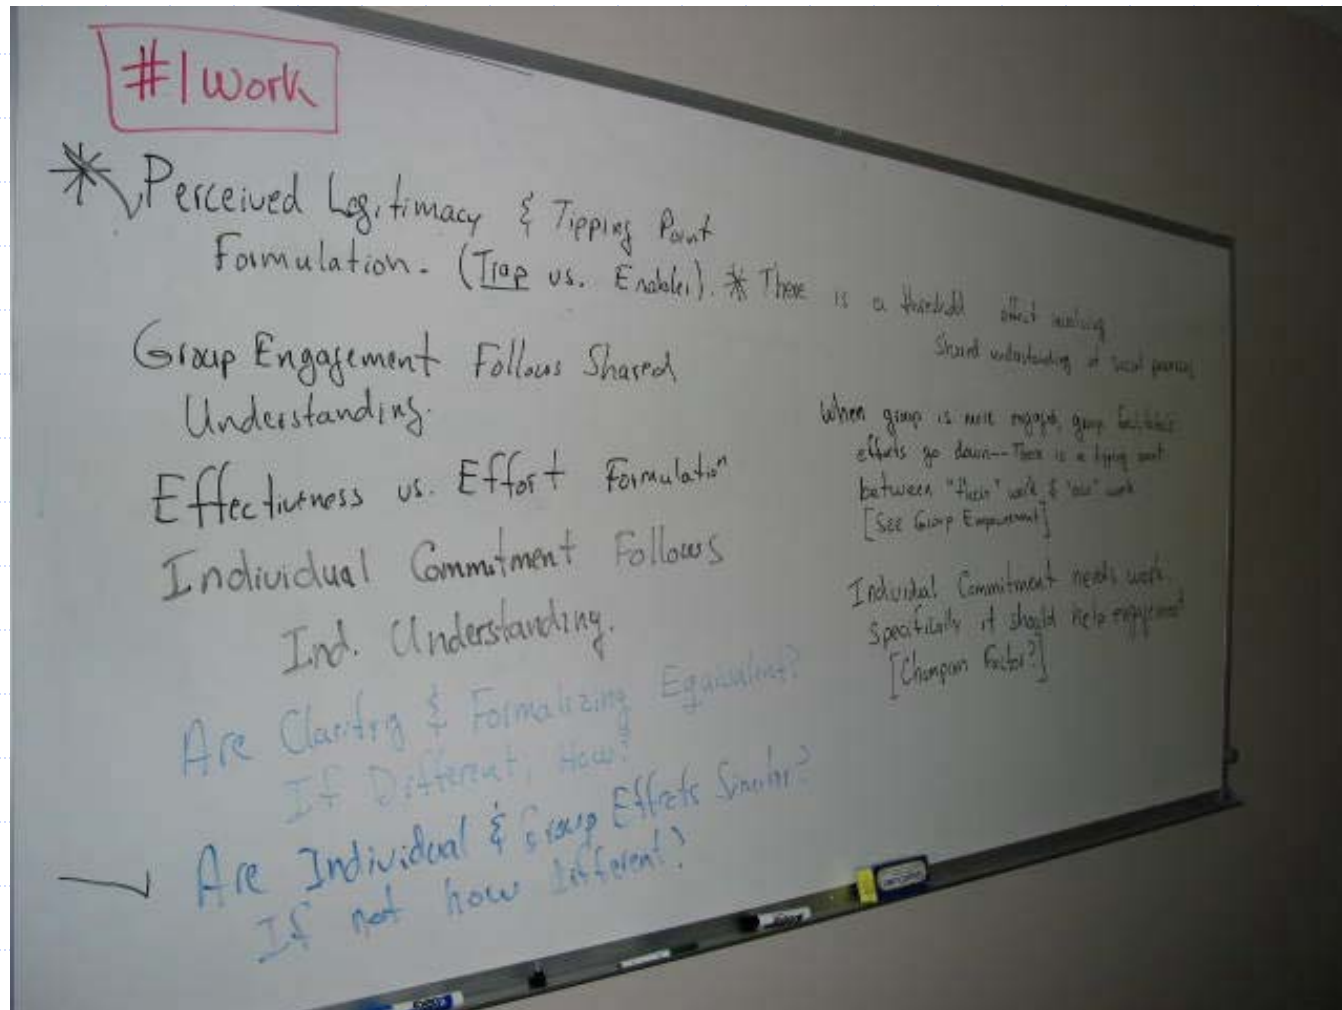 #1 Work
Perceived Legitimacy & Tipping Point
Formulation. (Trap vs. Enabler). * There is a threshold effect involving
Shared understanding of social processes
Group Engagement Follows Shared
Understanding.
Effectiveness vs. Effort Formulation
Individual Commitment Follows
Ind. Understanding.
Are Clarity & Formalizing Equivalent?
If Different, How?
Are Individual & Group Effects Similar?
If not how different?
When group is more engaged, group facilitator's
efforts go down-- There is a tipping point
between "their" work & "our" work
[See Group Empowerment]
Individual Commitment needs work.
Specifically it should help engagement
[Champion Factor?]